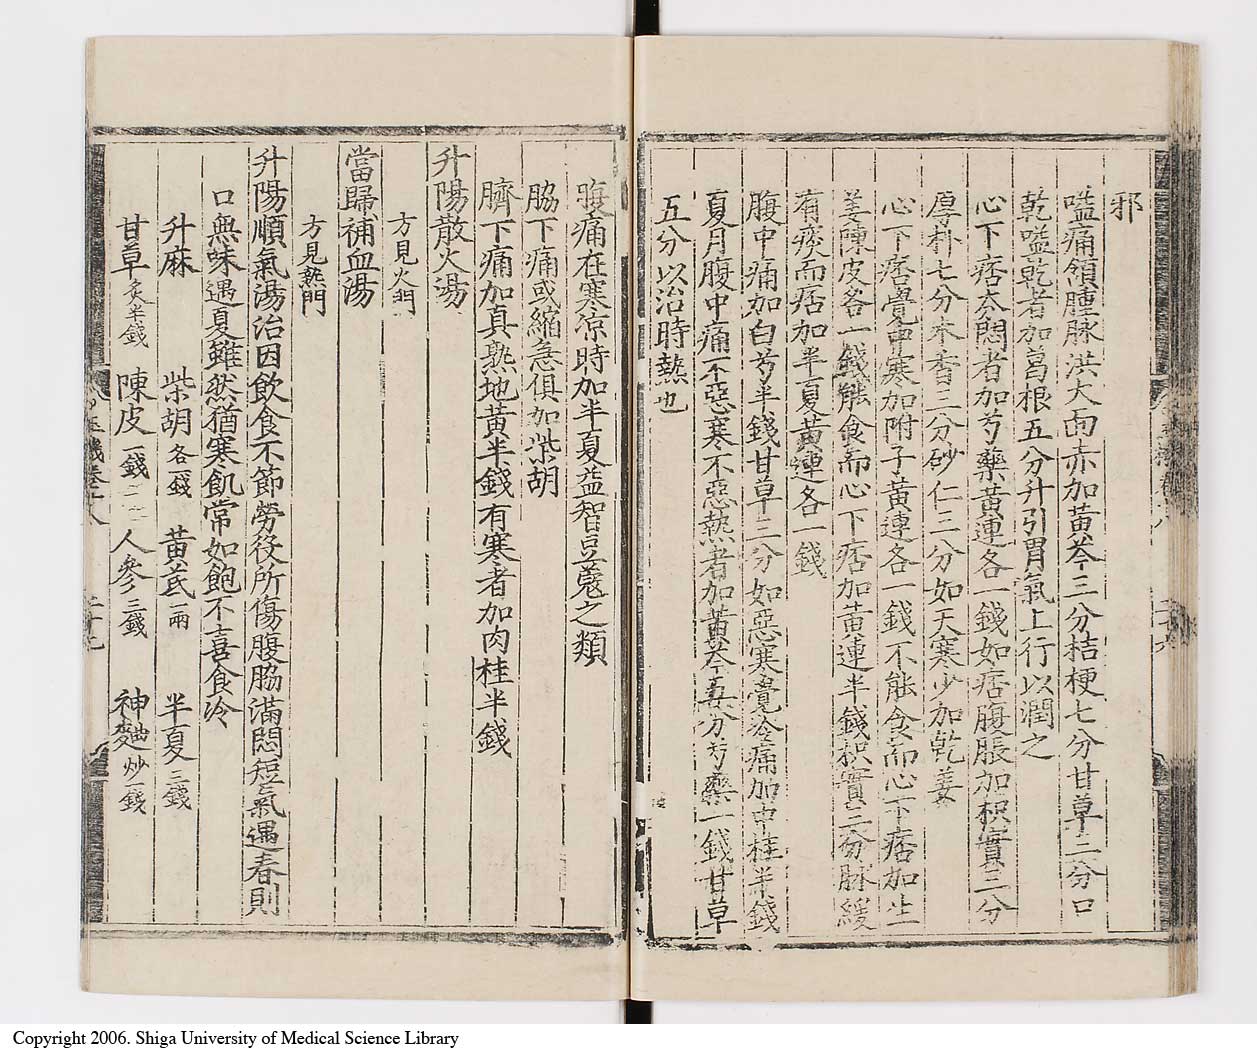 邪
嗌痛頷腫脉洪大面赤加黃芩三分桔梗七分甘草二分口
乾嗌乾者加葛根五分升引胃氣上行以潤之
心下痞夯悶者加芍藥黃連各一錢如痞腹脹加枳實三分
厚朴七分木香三分砂仁三分如天寒少加乾姜
心下痞覺中寒加附子黃連各一錢不能食而心下痞加生
姜陳皮各一錢能食而心下痞加黃連半錢枳實三分脉緩
有痰而痞加半夏黃連各一錢
腹中痛加白芍半錢甘草三分如惡寒覺冷痛加中桂半錢
夏月腹中痛不惡寒不惡熱者加黃芩五分芍藥一錢甘草
五分以治時熱也
腹痛在寒涼時加半夏益智豆蔻之類
脇下痛或縮急俱加柴胡
臍下痛加真熟地黃半錢有寒者加肉桂半錢
升陽散火湯
方見火門
當歸補血湯
方見熱門
升陽順氣湯治因飲食不節勞役所傷腹脇滿悶短氣遇春則
口無味遇夏雖然猶寒飢常如飽不喜食冷
升麻 柴胡各一錢 黃芪一兩 半夏三錢
甘草炙半錢 陳皮一錢 人參三錢 神麯炒二錢